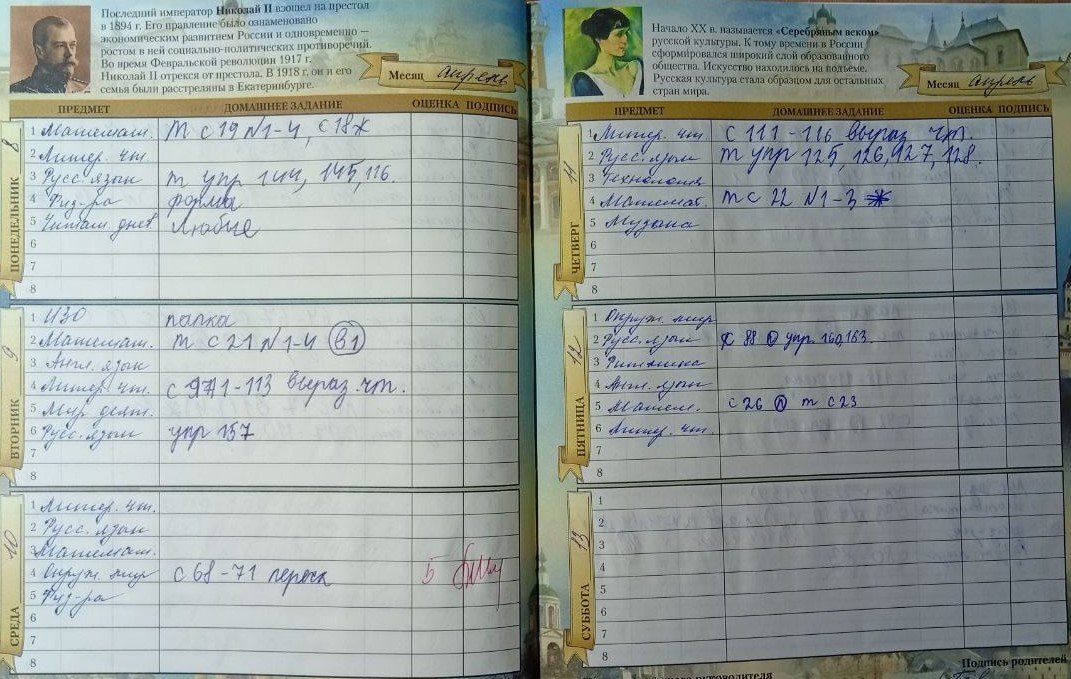 Последний император Николай II взошел на престол
в 1894 г. Его правление было ознаменовано
экономическим развитием России и одновременно –
ростом в ней социально-политических противоречий.
Во время Февральской революции 1917 г.
Николай II отрекся от престола. В 1918 г. он и его
семья были расстреляны в Екатеринбурге.
Месяц Апрель
ПРЕДМЕТ ДОМАШНЕЕ ЗАДАНИЕ ОЦЕНКА ПОДПИСЬ
ПОНЕДЕЛЬНИК 8
1 Математ. т с 19 №1-4, с 18 *
2 Литер. чт.
3 Русс. язык т упр 144, 145, 116.
4 Физ-ра форма
5 Читат. днев любые
6
7
8
ВТОРНИК 9
1 ИЗО папка
2 Математ. т с 21 №1-4 В1
3 Англ. язык
4 Литер. чт. с 111-113 выраз чт.
5 Мир деят.
6 Русс. язык упр 157
7
8
СРЕДА 10
1 Литер. чт.
2 Русс. язык
3 Математ.
4 Окруж. мир с 68-71 переск 5
5 Физ-ра
6
7
8
Начало XX в. называется «Серебряным веком»
русской культуры. К тому времени в России
сформировался широкий слой образованного
общества. Искусство находилось на подъеме.
Русская культура стала образцом для остальных
стран мира.
Месяц Апрель
ПРЕДМЕТ ДОМАШНЕЕ ЗАДАНИЕ ОЦЕНКА ПОДПИСЬ
ЧЕТВЕРГ 11
1 Литер. чт. с 111-116 выраз чт.
2 Русс. язык т упр 125, 126, 127, 128.
3 Технология
4 Математ. т с 22 №1-3
5 Музыка
6
7
8
ПЯТНИЦА 12
1 Окруж. мир
2 Русс. язык с 88 упр. 160, 163.
3 Ритмика
4 Англ. язык
5 Матем. с 26 Л т с 23
6 Литер. чт.
7
8
СУББОТА 13
1
2
3
4
5
6
7
8
Подпись родителей
руководителя